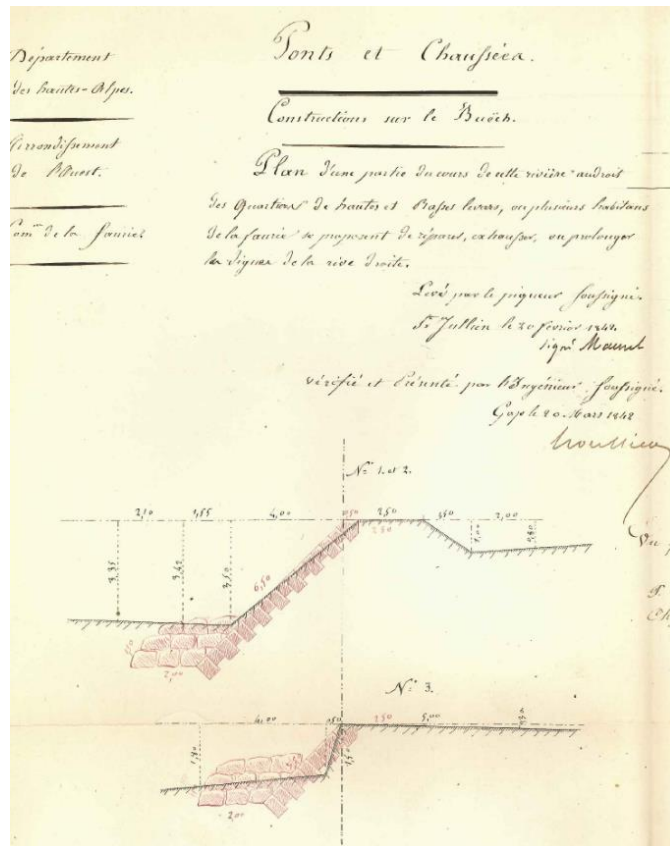 Département
des hautes-Alpes.
Arrondissement
de l'Ouest.
Com.ne de la faurie
Ponts et Chaussées.
Constructions sur le Buëch.
Plan d'une partie du cours de cette rivière audroit
des Quartiers de hautes et Basses, ou plusieurs habitans
de la faurie se proposent de réparer, exhausser, ou prolonger
les digues de la rive droite.
Levé par le piqueur soussigné.
St Jullien le 20 février 1842.
signé
vérifié et présenté par l'Ingénieur soussigné.
Gap le 20 Mars 1842
Vu
Nos 1. et 2.
2,10 1,55 4,00 0,50 2,50 1,50 2,00
2,50
3,35 3,42 3,50 6,50 1,00 0,80
2,00
N° 3.
4,00 0,50 2,50 5,00
1,50
2,00